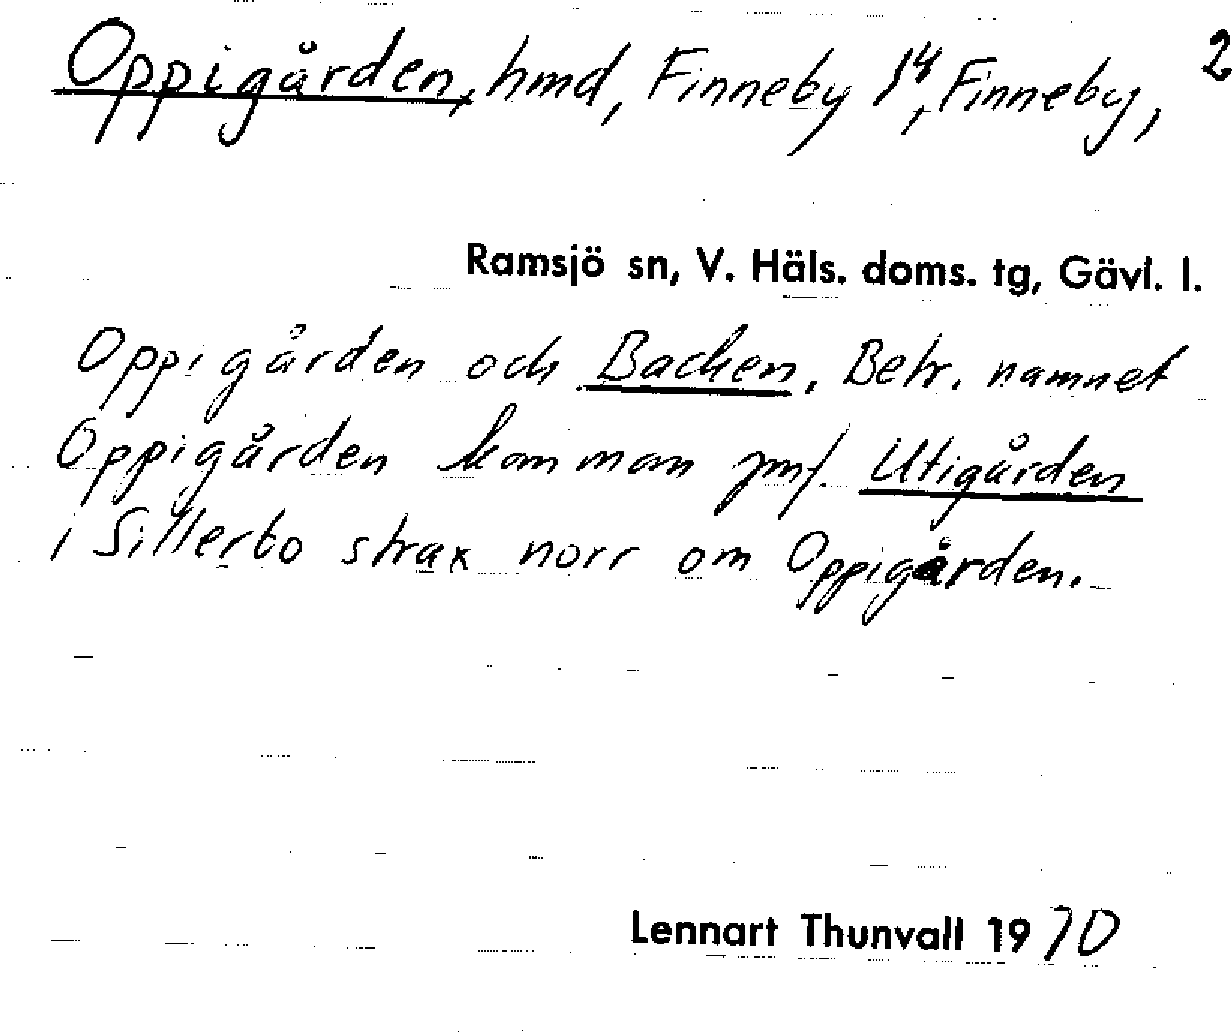 Oppigården, hmd, Finneby 1⁴, Finneby, 2
Ramsjö sn, V. Häls. doms. tg, Gävl. l.
Oppigården och Backen. Betr. namnet
Oppigården kan man jmf. Utigården
i Sillerbo strax norr om Oppigården.
Lennart Thunvall 1970